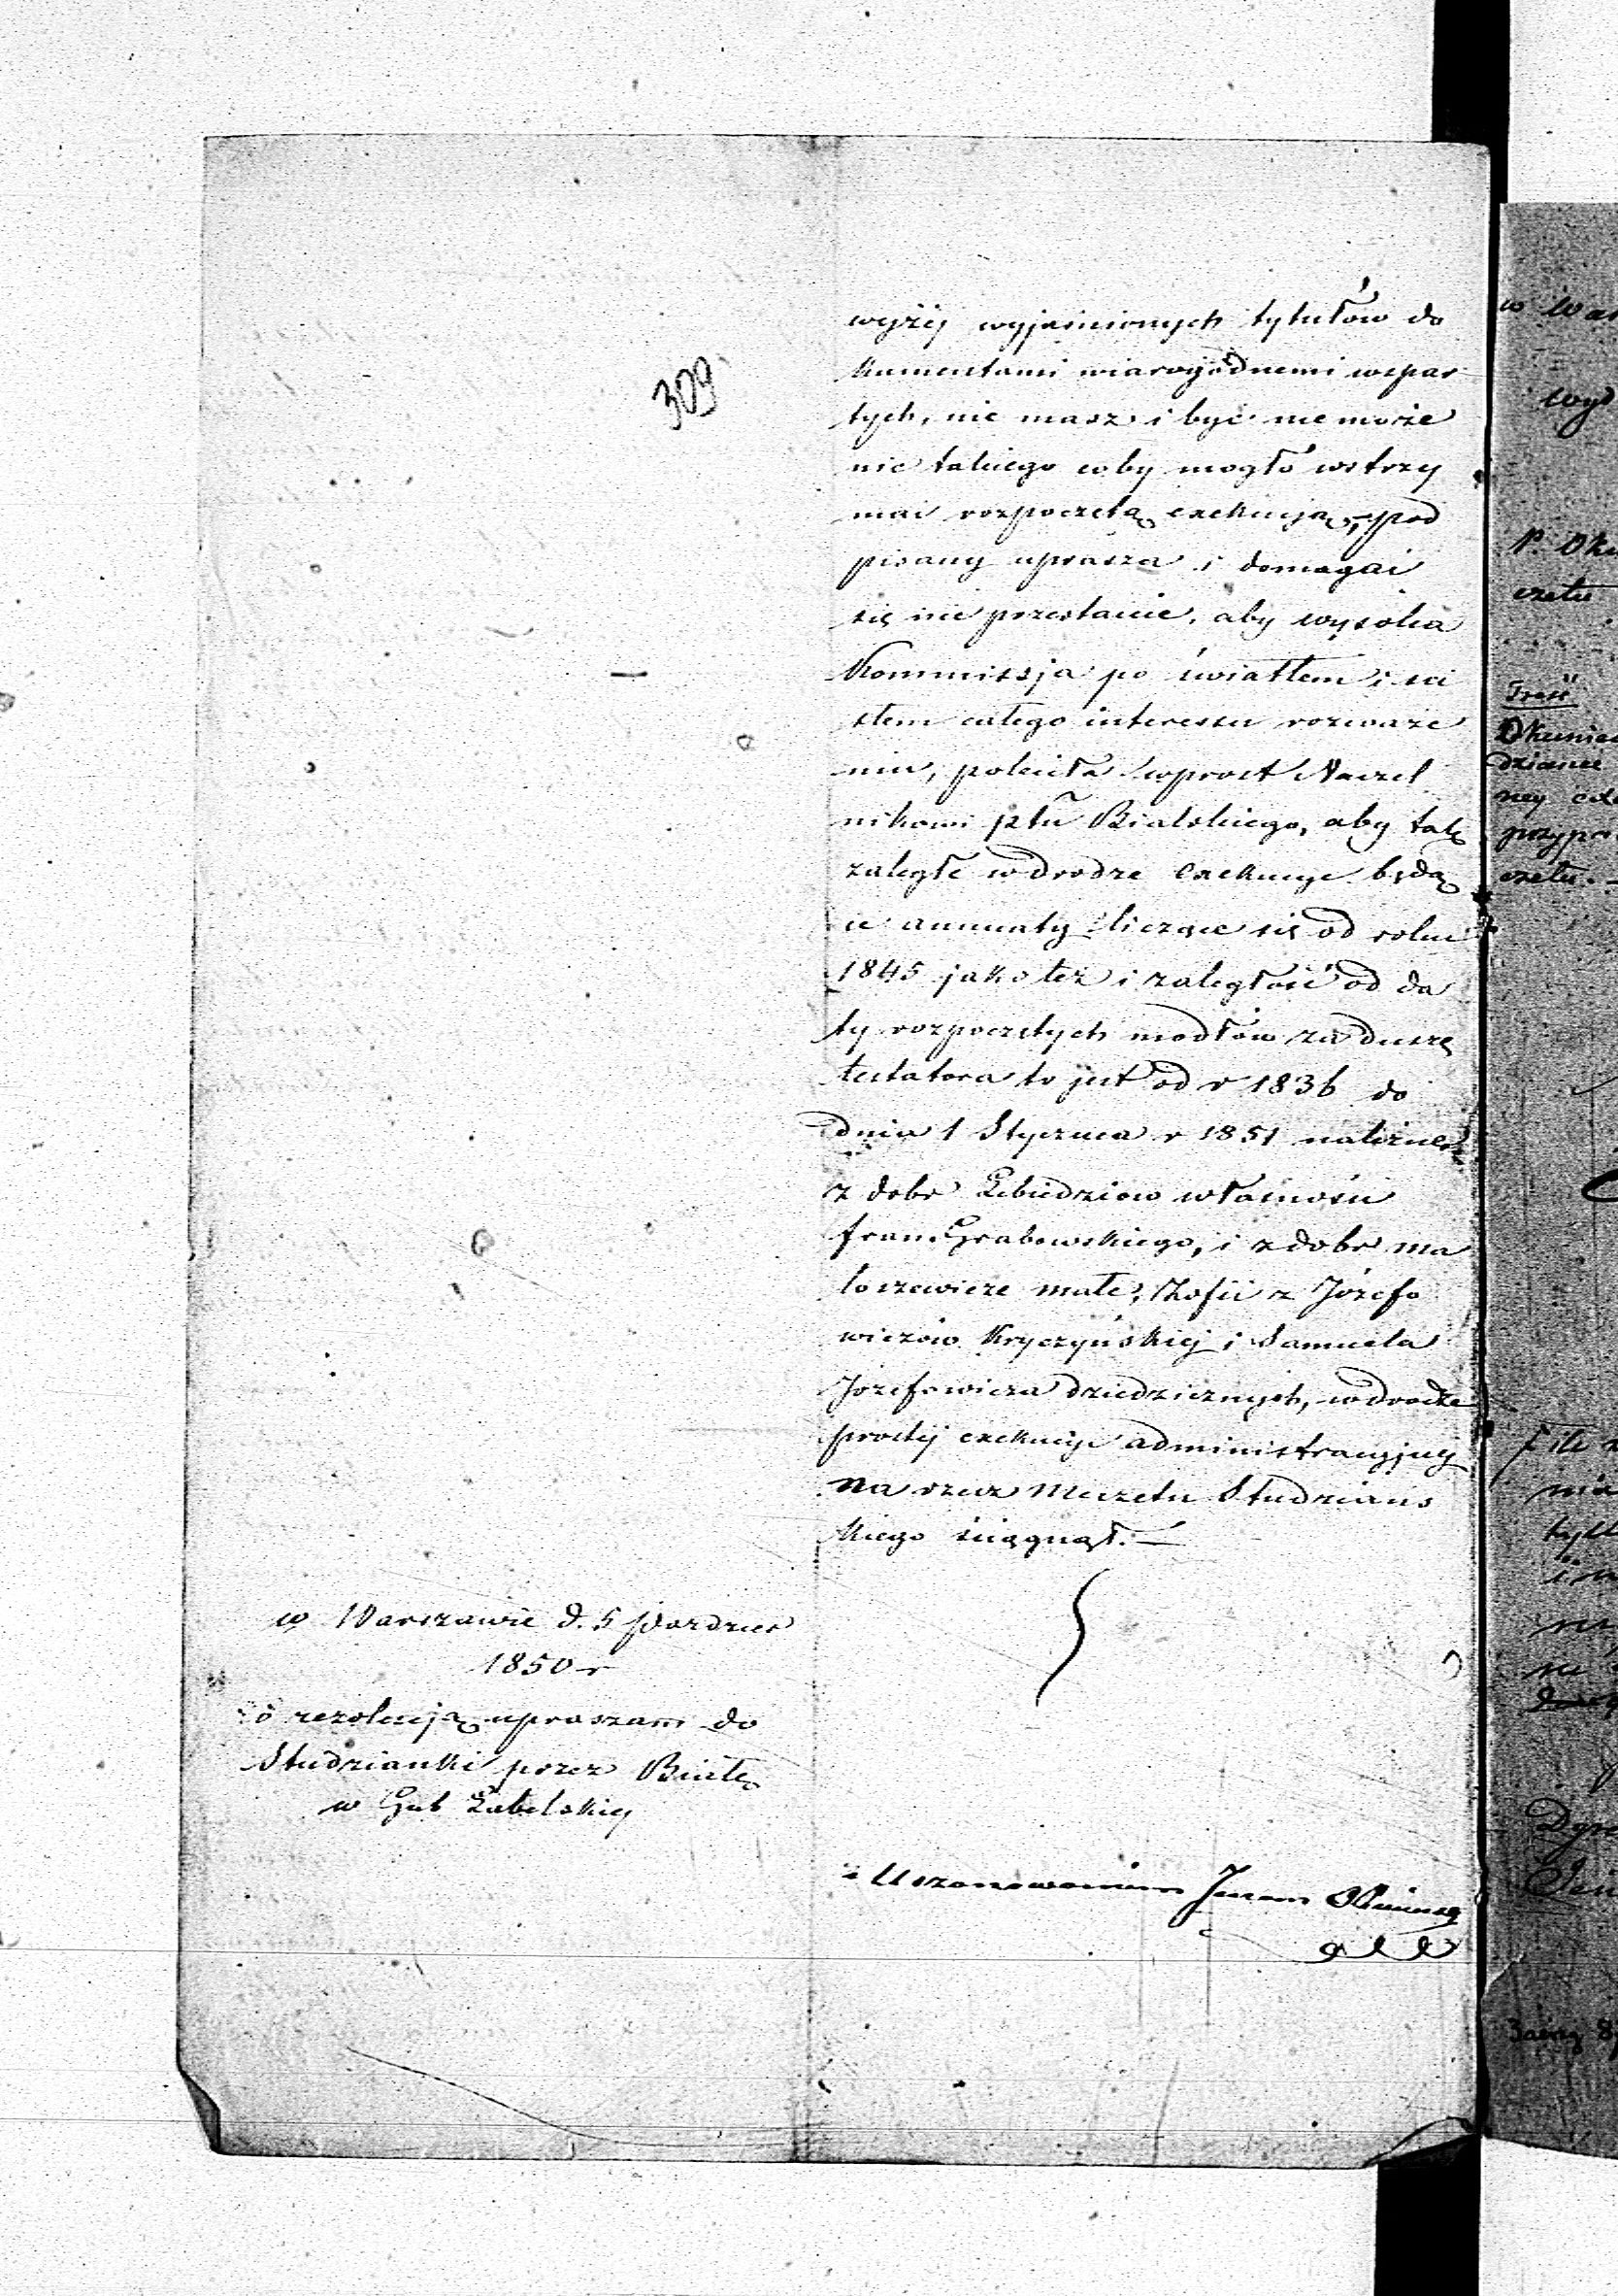 309
wyżej wyjaśnionych tytułów do
kumentami wiarogodnemi wspar
tych, nie masz i być nie może
nic takiego coby mogło wstrzy
mać rozpoczętą exekucją, – pod
pisany uprasza i domagać
się nie przestanie, aby wysoka
Kommissja po światłem i ści
słem całego interessu rozważe
niu, poleciła wprost Naczel
nikowi ptu Bialskiego, aby tak
zaległe w drodze exekucyi będą
ce annuaty liczące się od roku
1845 jako też i zaległość od da
ty rozpoczętych modłów za duszę
testatora to jest od r 1836 do
dnia 1 Stycznia r 1851 należne
z dobr Lebiedziow własności
fran. Grabowskiego, i z dobr ma
łoszewicze małe, Zofii z Józefo
wiczów Kryczyńskiej i Samuela
Józefowicza dziedzicznych, w drodze
prostej exekucyi administracyjnej
na rzecz Meczetu Studzians
kiego ściągnął. —
w Warszawie d. 5 Pazdzier
1850 r
o rezolucją upraszam do
Studzianki przez Białę
w Gub Lubelskiej
z Uszanowaniem
w War
wyd
czetu
Treść
dziance
ney
przypo
czetu. –